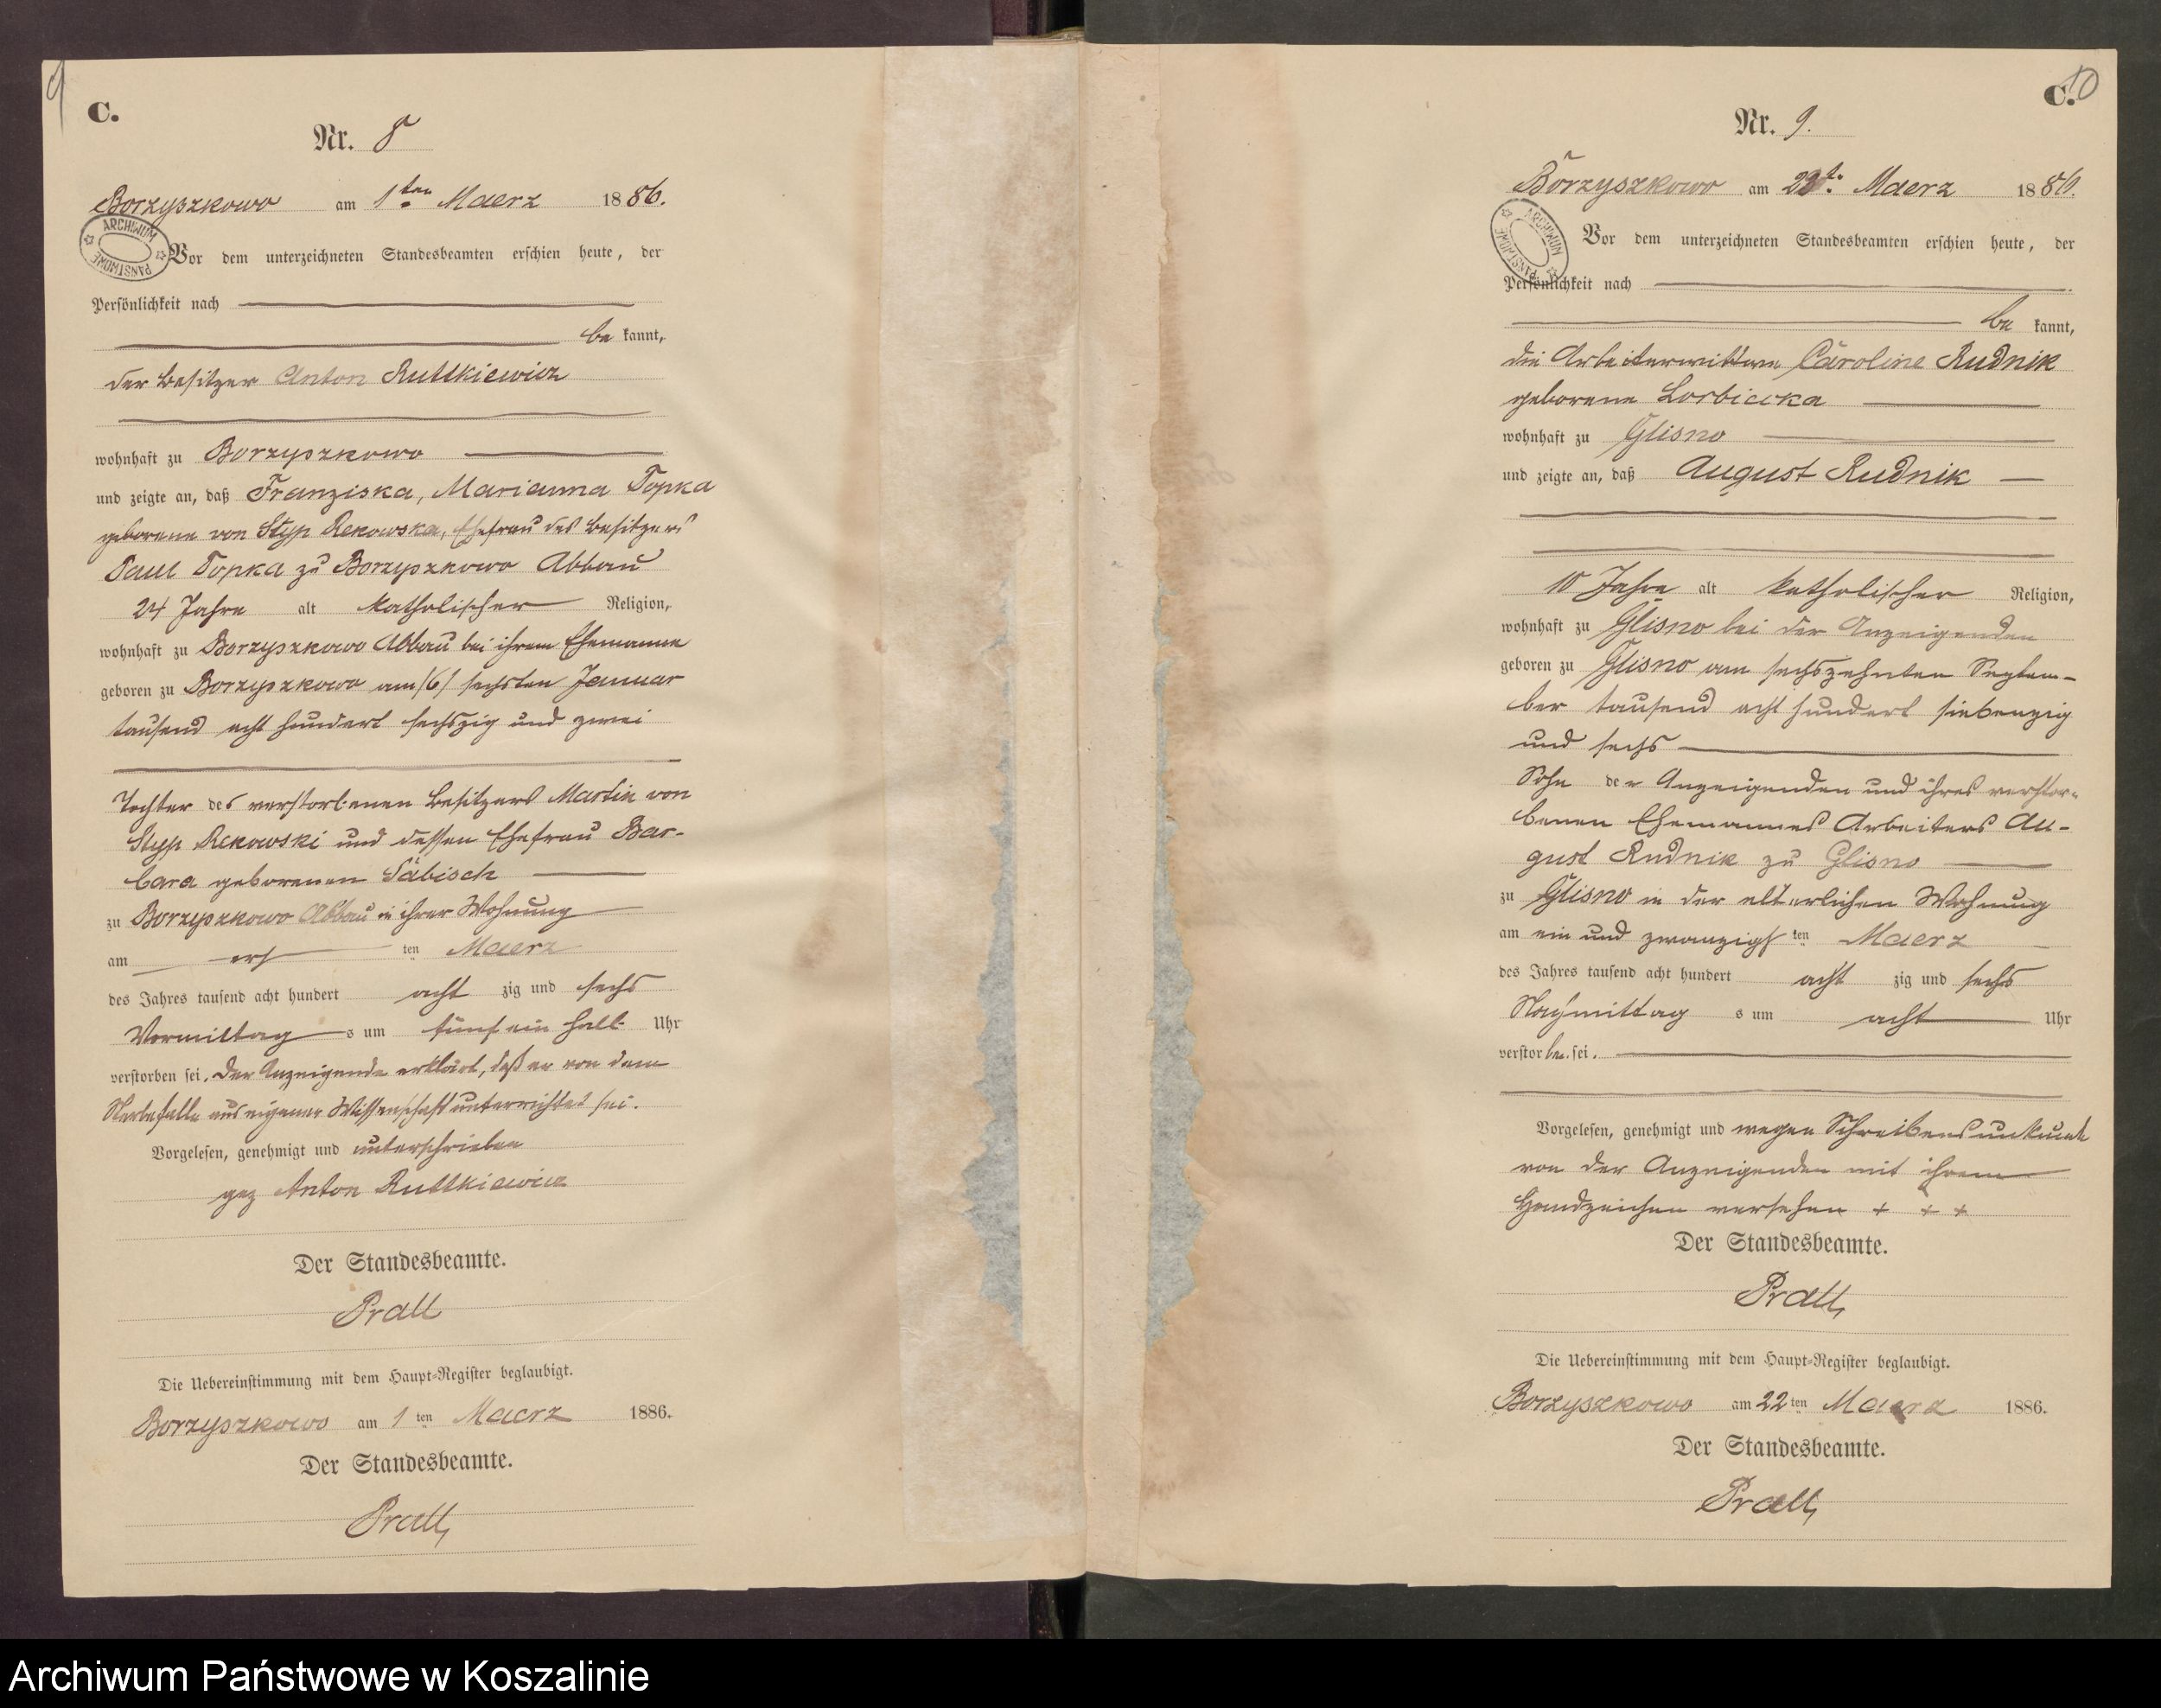 9
C.
Nr. 8
Borzyszkowo am 1ten Maerz 1886.
ARCHIWUM PAŃSTWOWE
Vor dem unterzeichneten Standesbeamten erschien heute, der
Persönlichkeit nach
be kannt,
der Besitzer Anton Ruttkiewicz
wohnhaft zu Borzyszkowo
und zeigte an, daß Franziska, Marianna Topka
geborene von Styp Rekowska, Ehefrau des Besitzers
Paul Topka zu Borzyszkowo Abbau
24 Jahre alt katholischer Religion,
wohnhaft zu Borzyszkowo Abbau bei ihrem Ehemanne
geboren zu Borzyszkowo am /6/ sechsten Januar
tausend acht hundert sechszig und zwei
Tochter des verstorbenen Besitzers Martin von
Styp Rekowski und dessen Ehefrau Bar-
bara geborenen Säbisch
zu Borzyszkowo Abbau in ihrer Wohnung
am ers ten Maerz
des Jahres tausend acht hundert acht zig und sechs
Vormittag s um fünf ein halb Uhr
verstorben sei. Der Anzeigende erklärt, daß er von dem
Sterbefalle aus eigener Wissenschaft unterrichtet sei.
Vorgelesen, genehmigt und unterschrieben
gez Anton Ruttkiewicz
Der Standesbeamte.
Prall
Die Uebereinstimmung mit dem Haupt-Register beglaubigt.
Borzyszkowo am 1 ten Maerz 1886.
Der Standesbeamte.
Prall
10
C.
Nr. 9.
Borzyszkowo am 22te Maerz 1886.
ARCHIWUM PAŃSTWOWE
Vor dem unterzeichneten Standesbeamten erschien heute, der
Persönlichkeit nach
be kannt,
die Arbeiterwittwe Caroline Rudnik
geborene Lorbiecka
wohnhaft zu Glisno
und zeigte an, daß August Rudnik
10 Jahre alt katholischer Religion,
wohnhaft zu Glisno bei der Anzeigenden
geboren zu Glisno am sechszehnten Septem-
ber tausend acht hundert siebenzig
und sechs
Sohn der Anzeigenden und ihres verstor-
benen Ehemannes Arbeiters Au-
gust Rudnik zu Glisno
zu Glisno in der elterlichen Wohnung
am ein und zwanzigs ten Maerz
des Jahres tausend acht hundert acht zig und sechs
Nachmittag s um acht Uhr
verstorben sei.
Vorgelesen, genehmigt und wegen Schreibensunkunde
von der Anzeigenden mit ihrem
Handzeichen versehen + + +
Der Standesbeamte.
Prall
Die Uebereinstimmung mit dem Haupt-Register beglaubigt.
Borzyszkowo am 22 ten Maerz 1886.
Der Standesbeamte.
Prall
Archiwum Państwowe w Koszalinie